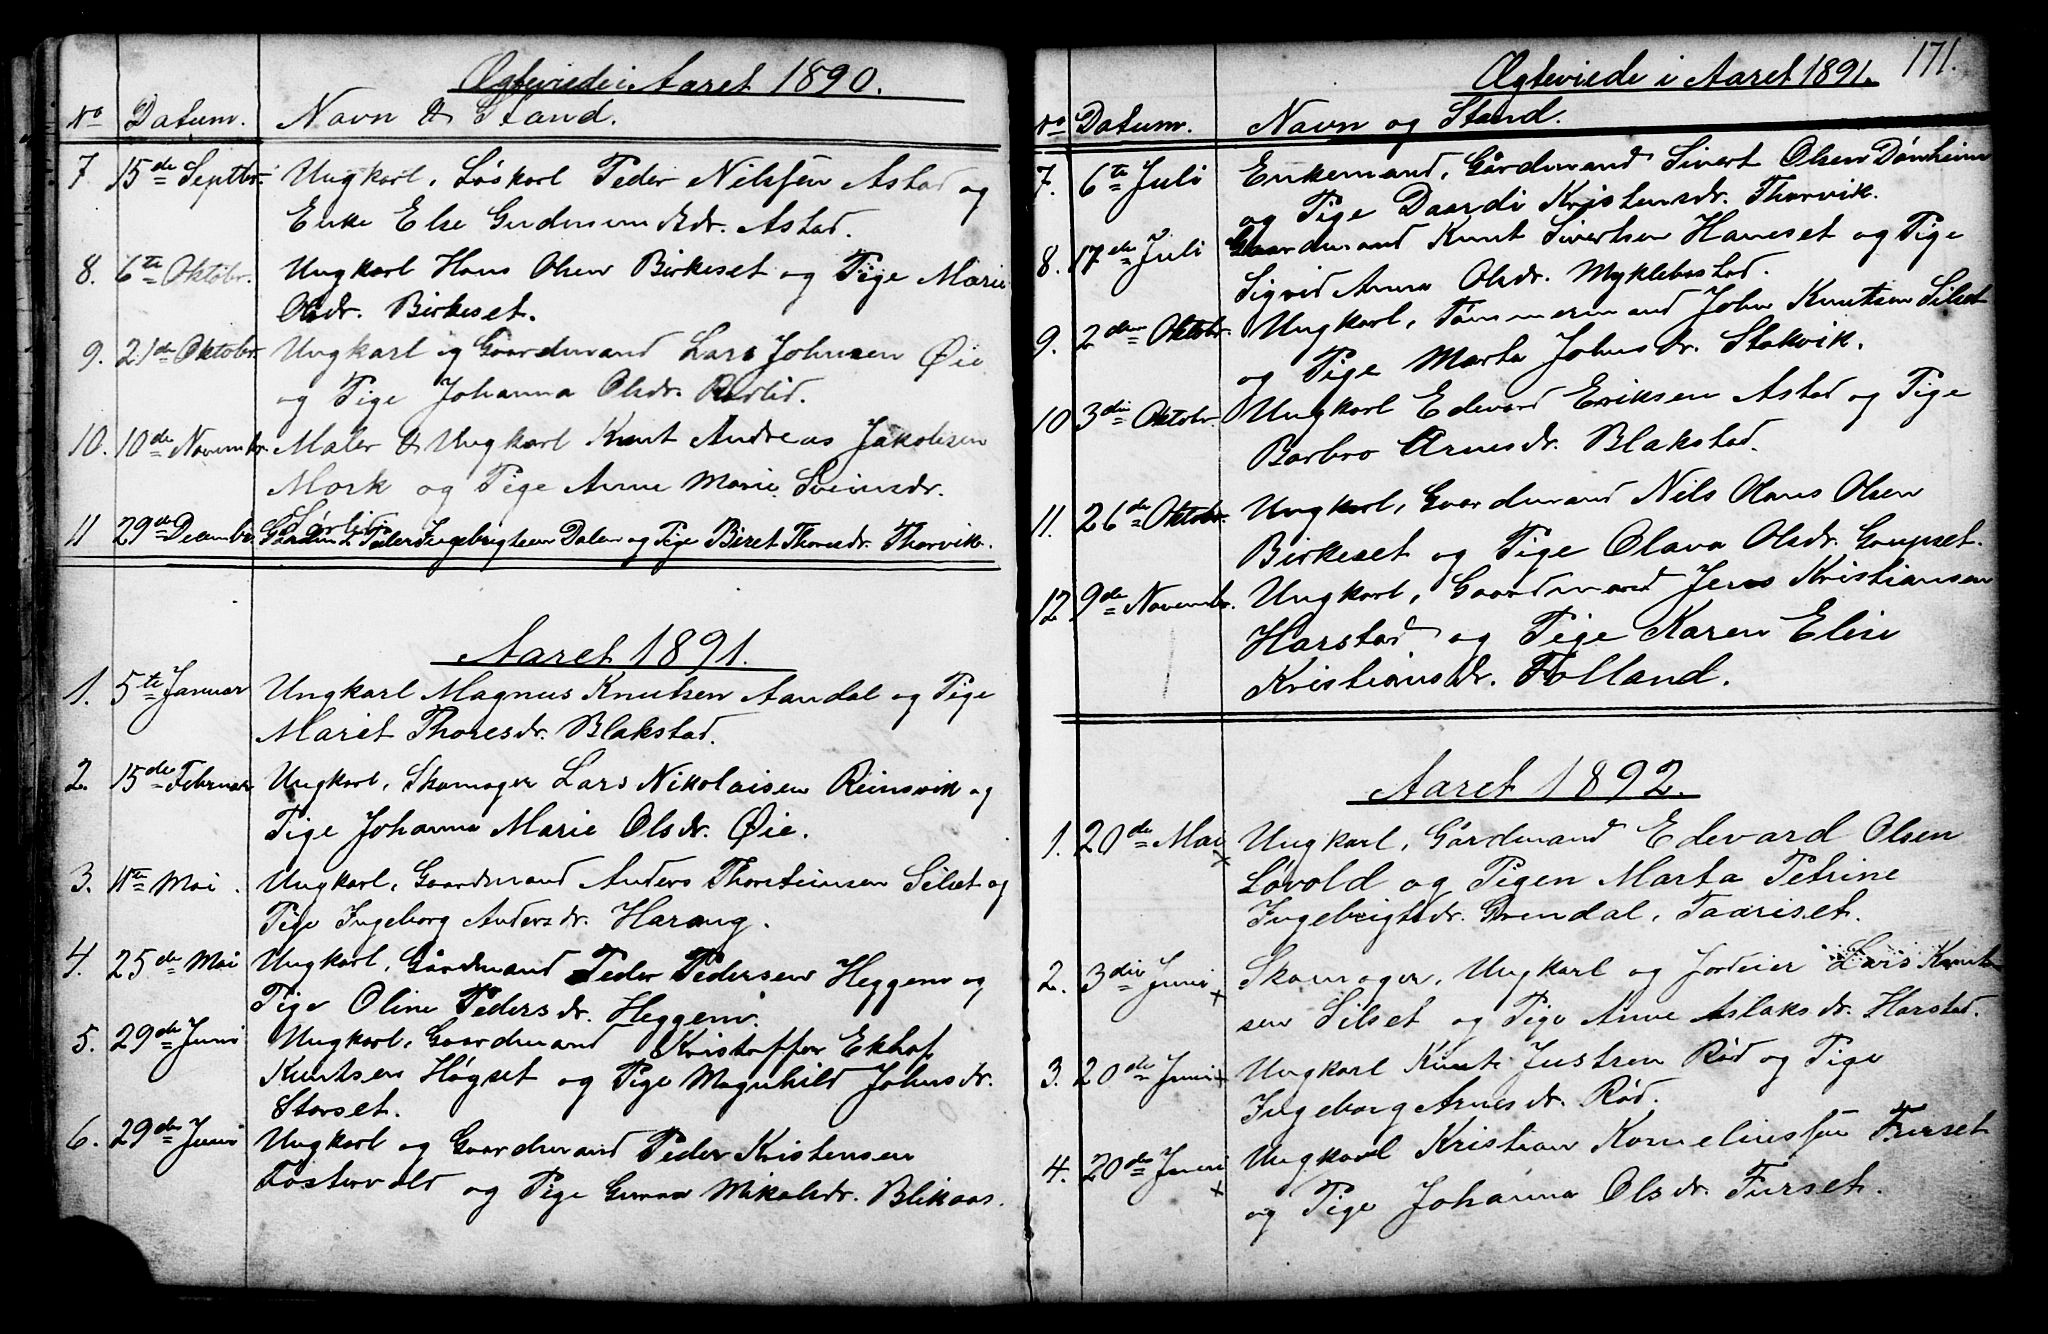 Ægteviede i Aaret 1890.
No Datum. Navn & Stand.
7. 15de Septbr. Ungkarl, Løskarl Peder Nilssen Astad og
Enke Else Gudmundsdr. Astad.
8. 6te Oktobr. Ungkarl Hans Olsen Birkeset og Pige Marie
Olsdr. Birkeset.
9. 21de Oktobr. Ungkarl og Gaardmand Lars Johnsen Øie
og Pige Johanna Olsdr. Rødlid.
10. 10de Novembr. Maler & Ungkarl Knut Andreas Jakobsen
Mork og Pige Anne Marie Sveinsdr.
Sørlid.
11 29de Decembr. Gaardm. Peder Ingebrigtsen Dalen og Pige Beret Thoresdr. Thorvik.
Aaret 1891.
1. 5te Januar Ungkarl Magnus Knutsen Aandal og Pige
Marit Thoresdr. Blakstad.
2. 15de Februar Ungkarl, Skomager Lars Nikolaisen Reinsvik og
Pige Johanna Marie Olsdr. Øie.
3. 11te Mai. Ungkarl, Gaardmand Anders Thorsteinsen Silset og
Pige Ingeborg Andersdr. Harang.
4. 25de Mai Ungkarl, Gårdmand Peder Pedersen Heggem og
Pige Oline Pedersdr. Heggem.
5. 29de Juni Ungkarl, Gaardmand Kristoffer Ekhof
Knutsen Høgset og Pige Magnhild Johnsdr.
Storset.
6. 29de Juni Ungkarl og Gaardmand Peder Kristensen
Fostervold og Pige Gunna Mikalsdr. Blikaas.
171.
Ægteviede i Aaret 1891.
No Datum. Navn og Stand.
7. 6te Juli Enkemand, Gårdmand Sivert Olsen Dønheim
og Pige Daardi Kristensdr. Thorvik.
8. 17de Juli Gaardmand Knut Sivertsen Haneset og Pige
Sigrid Anna Olsdr. Myklebostad.
9. 2den Oktobr. Ungkarl, Tømmermand John Knutsen Silset
og Pige Marta Johnsdr. Stokvik.
10 3die Oktobr. Ungkarl Edvard Eriksen Astad og Pige
Barbro Arnesdr. Blakstad.
11. 26de Oktobr. Ungkarl, Gaardmand Nils Hans Olsen
Birkeset og Pige Olava Olsdr. Gaupset.
12 9de Novembr. Ungkarl, Gaardmand Jens Kristiansen
Harstad og Pige Karen Elise
Kristiansdr. Folland.
Aaret 1892.
1. 20de Mai x Ungkarl, Gårdmand Edevard Olsen
Løvold og Pigen Marta Petrine
Ingebrigtsdr. Grendal, Taariset.
2. 3die Juni x Skomager, Ungkarl og Jordeier Lars Knut-
sen Silset og Pige Anne Aslaksdr. Harstad.
3. 20de Juni x Ungkarl Knut Justsen Rød og Pige
Ingeborg Arnesdr. Rød.
4. 20de Juni x Ungkarl Kristian Korneliussen Furset
og Pige Johanna Olsdr. Furset.